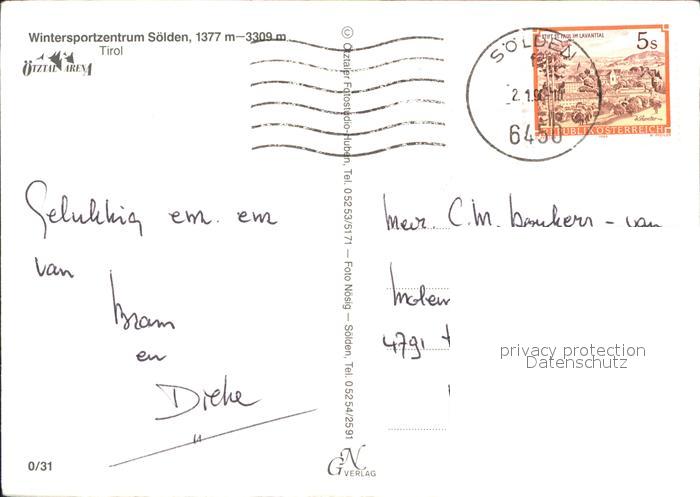 Wintersportzentrum Sölden, 1377 m—3309 m
Tirol
ÖTZTAL ARENA
© Ötztaler Fotostudio-Huben, Tel. 05253/5171 — Foto Nösig — Sölden, Tel. 05254/2591
SÖLDEN
6450
STIFT ST. PAUL IM LAVANTTAL
5s
REPUBLIK ÖSTERREICH
Gelukkig en. en
van
Bram
en
Dieke
Mevr. C.M.
- van
Molen
4791
privacy protection
Datenschutz
0/31
GN VERLAG